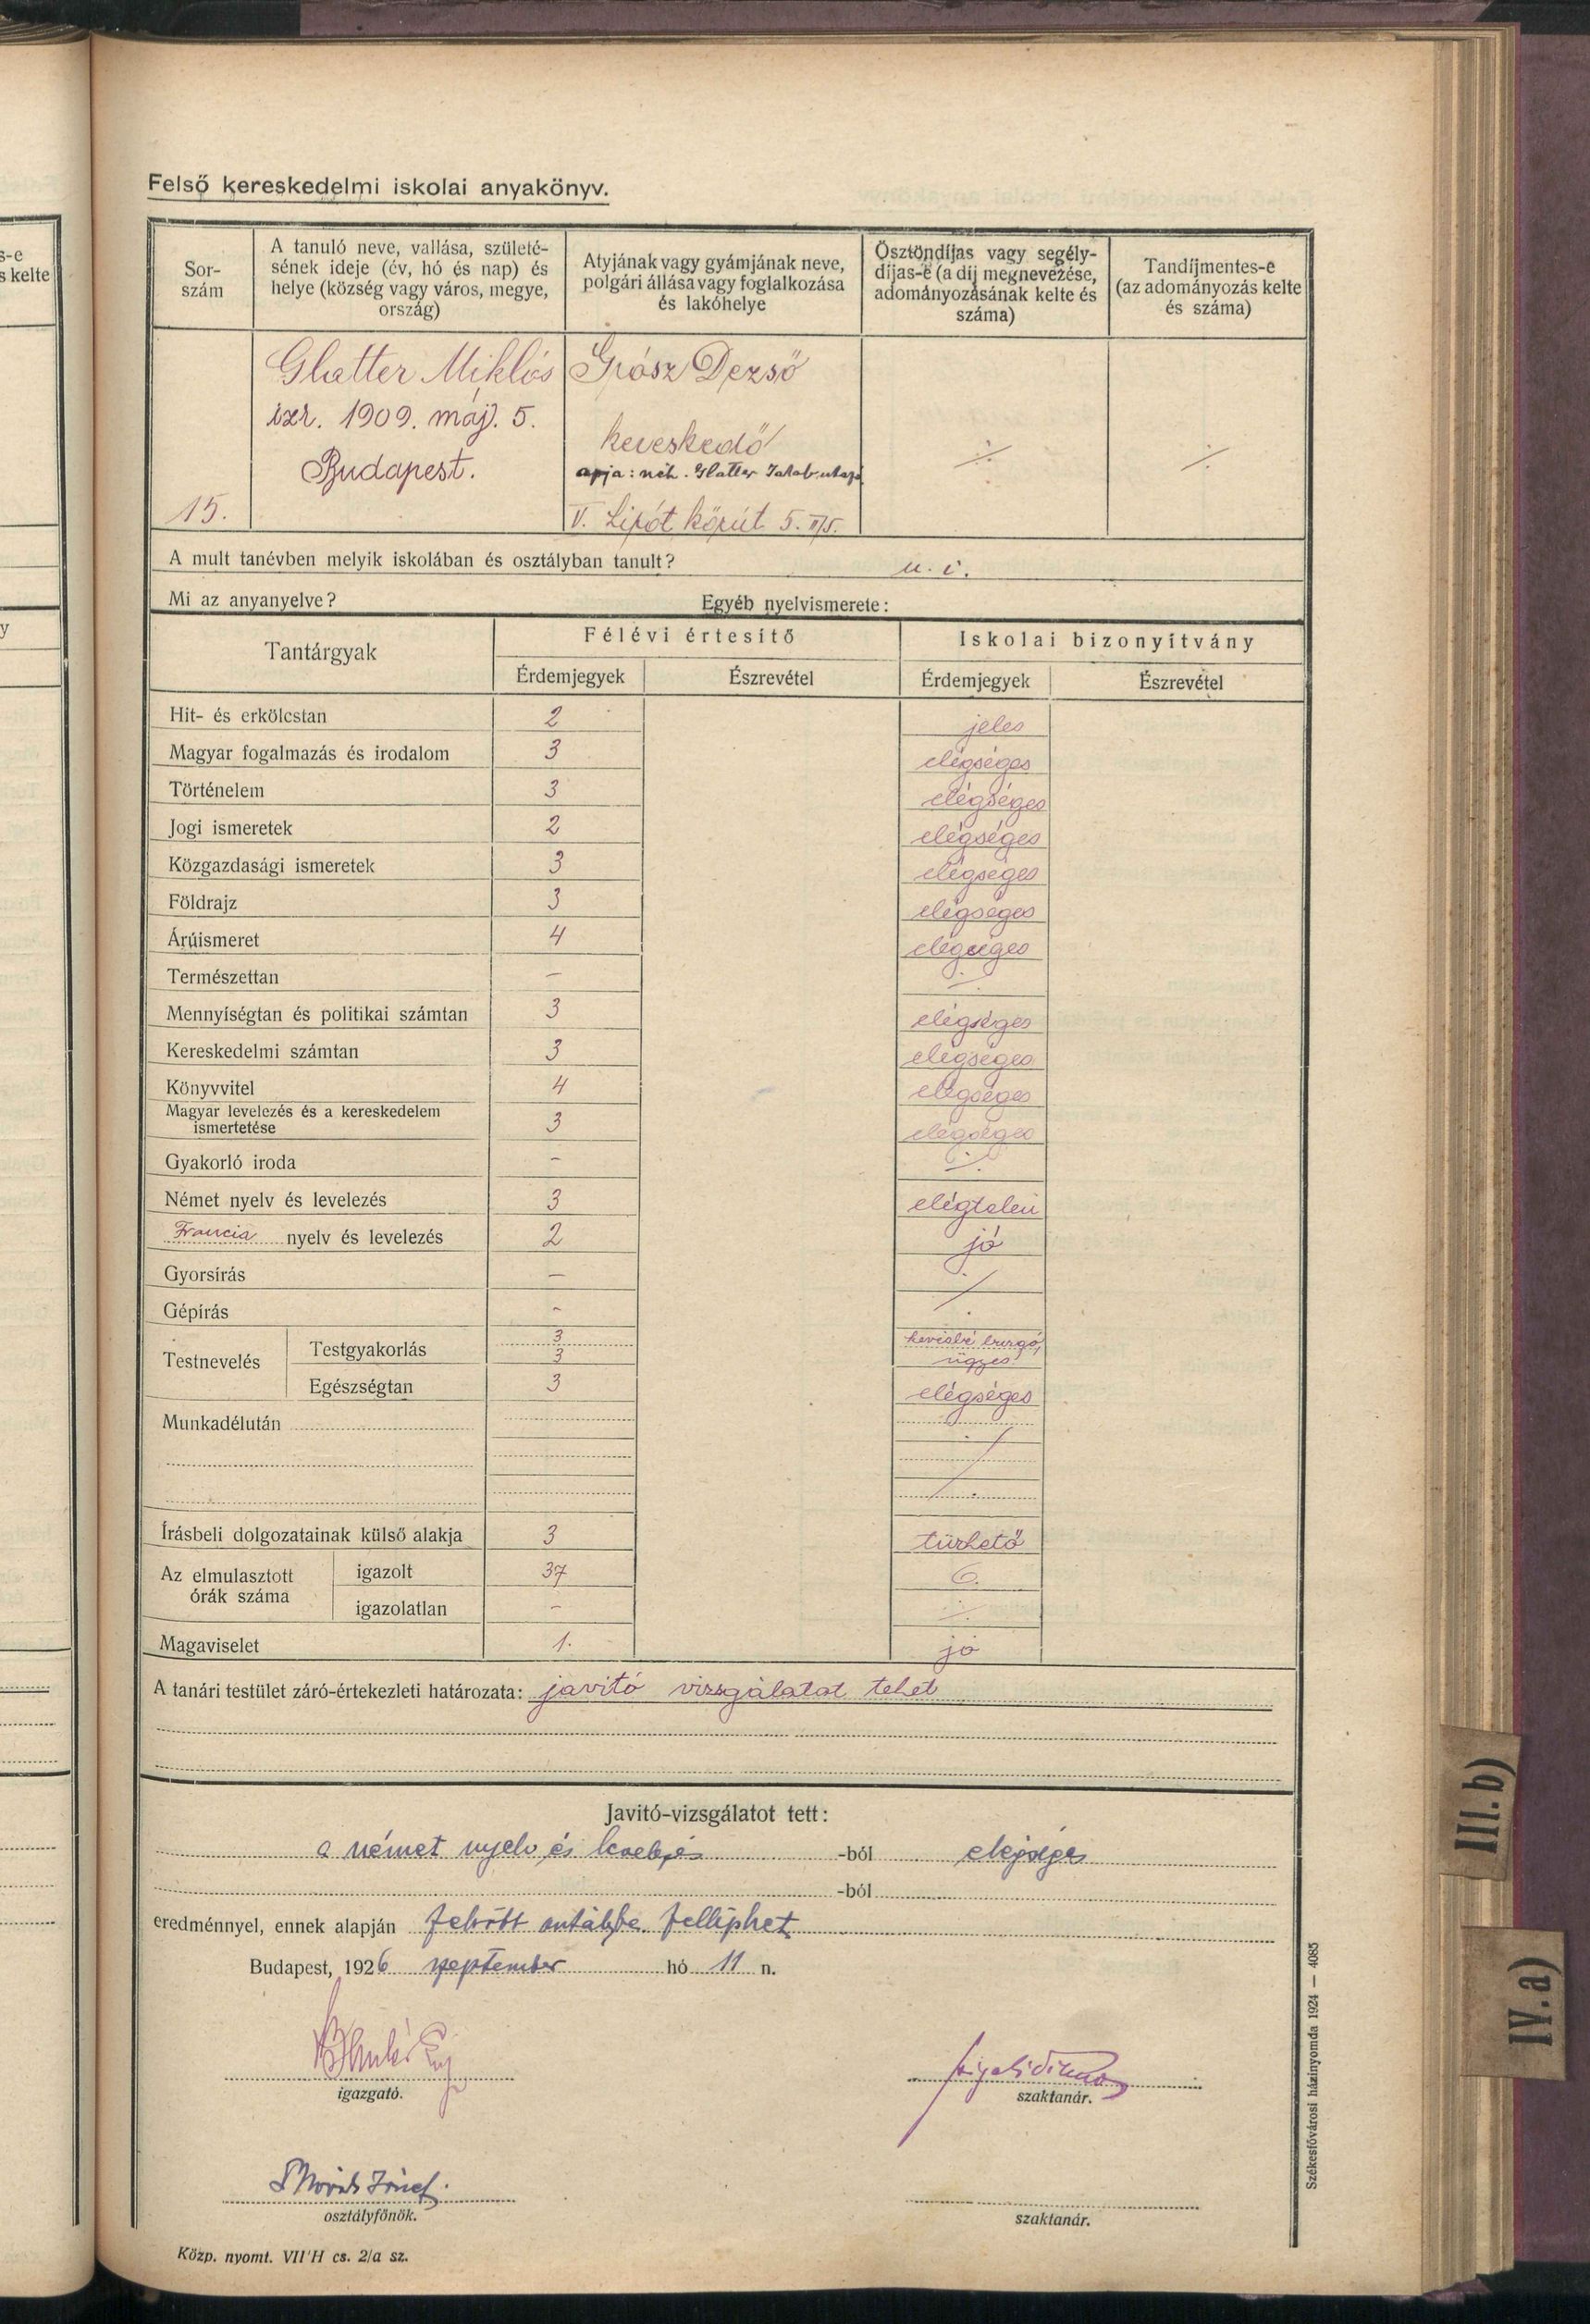 Felső kereskedelmi iskolai anyakönyv.
s-e
s kelte
y
Sor-
szám
A tanuló neve, vallása, születé-
sének ideje (év, hó és nap) és
helye (község vagy város, megye,
ország)
Atyjának vagy gyámjának neve,
polgári állása vagy foglalkozása
és lakóhelye
Ösztöndíjas vagy segély-
díjas-e (a díj megnevezése,
adományozásának kelte és
száma)
Tandíjmentes-e
(az adományozás kelte
és száma)
15.
Glatter Miklós
izr. 1909. máj. 5.
Budapest.
Grósz Dezső
kereskedő
apja: néh. Glatter Jakab utazó
V. Lipót körút 5. II/5.
A mult tanévben melyik iskolában és osztályban tanult? u. i.
Mi az anyanyelve? Egyéb nyelvismerete:
Tantárgyak Félévi értesítő Iskolai bizonyítvány
Érdemjegyek Észrevétel Érdemjegyek Észrevétel
Hit- és erkölcstan 2 jeles
Magyar fogalmazás és irodalom 3 elégséges
Történelem 3 elégséges
Jogi ismeretek 2 elégséges
Közgazdasági ismeretek 3 elégséges
Földrajz 3 elégséges
Árúismeret 4 elégséges
Természettan — ·/·
Mennyiségtan és politikai számtan 3 elégséges
Kereskedelmi számtan 3 elégséges
Könyvvitel 4 elégséges
Magyar levelezés és a kereskedelem
ismertetése 3 elégséges
Gyakorló iroda - ·/·
Német nyelv és levelezés 3 elégtelen
Francia nyelv és levelezés 2 jó
Gyorsírás — ·/·
Gépírás -
Testnevelés Testgyakorlás 3 kevésbé buzgó,
3 ügyes
Egészségtan 3 elégséges
Munkadélután ·/·
Írásbeli dolgozatainak külső alakja 3 tűrhető
Az elmulasztott
órák száma
igazolt 37 6.
igazolatlan - ·/·
Magaviselet 1. jó
A tanári testület záró-értekezleti határozata: javító vizsgálatot tehet
Javitó-vizsgálatot tett:
a német nyelv és levelezés -ból elégséges
-ból
eredménnyel, ennek alapján felsőbb osztályba felléphet
Budapest, 1926 szeptember hó 11 n.
igazgató.
szaktanár.
József
osztályfőnök.
szaktanár.
Közp. nyomt. VII'H cs. 2/a sz.
Székesfővárosi házinyomda 1924 — 4085
III.b)
IV.a)